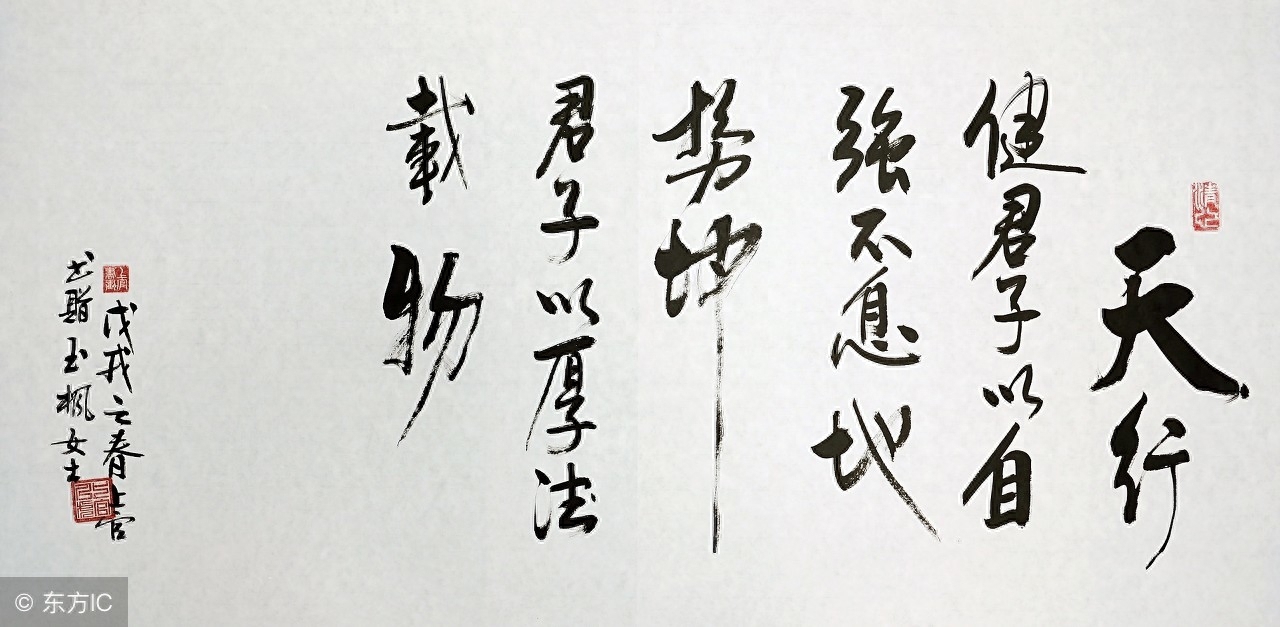 天行
健君子以自
強不息地
势坤
君子以厚法
載物
戊戌之春上官
书贈玉楓女士
© 东方IC